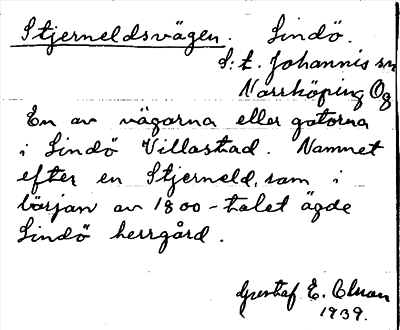 Stjerneldsvägen. Lindö.
S:t. Johannis sn
Norrköping Ög
En av vägarna eller gatorna
i Lindö Villastad. Namnet
efter en Stjerneld, som i
början av 1800-talet ägde
Lindö herrgård.
Gustaf E.
1939.